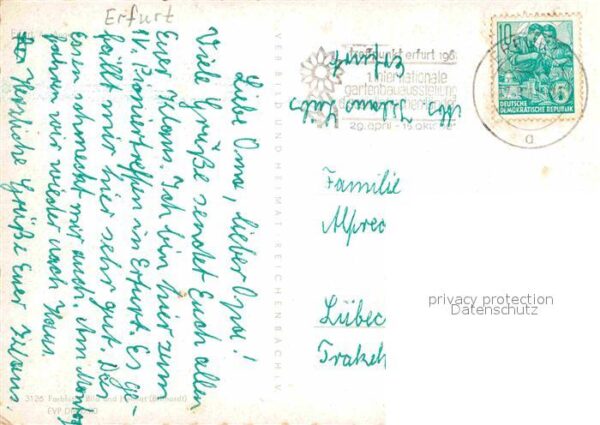 Erfurt
Liebe Oma, lieber Opa!
Viele Grüße sendet Euch allen
Euer Klaus. Ich bin hier zum
IV. Pioniertreffen in Erfurt. Es ge-
fällt mir hier sehr gut. Das
Essen schmeckt mir auch. Am Montag
fahren wir wieder nach Haus.
Herzliche Grüße Euer Klaus.
VERLAG BILD UND HEIMAT · REICHENBACH i. V.
treffpunkt erfurt 196
1. internationale
gartenbauausstellung
29. april - 15. oktober
Abs. Klaus
Erfurt
10
DEUTSCHE
DEMOKRATISCHE REPUBLIK
a
Familie
Alfred
Lübec
Trakeh
privacy protection
Datenschutz
3126 Farbfoto: Bild und Heimat
EVP DM